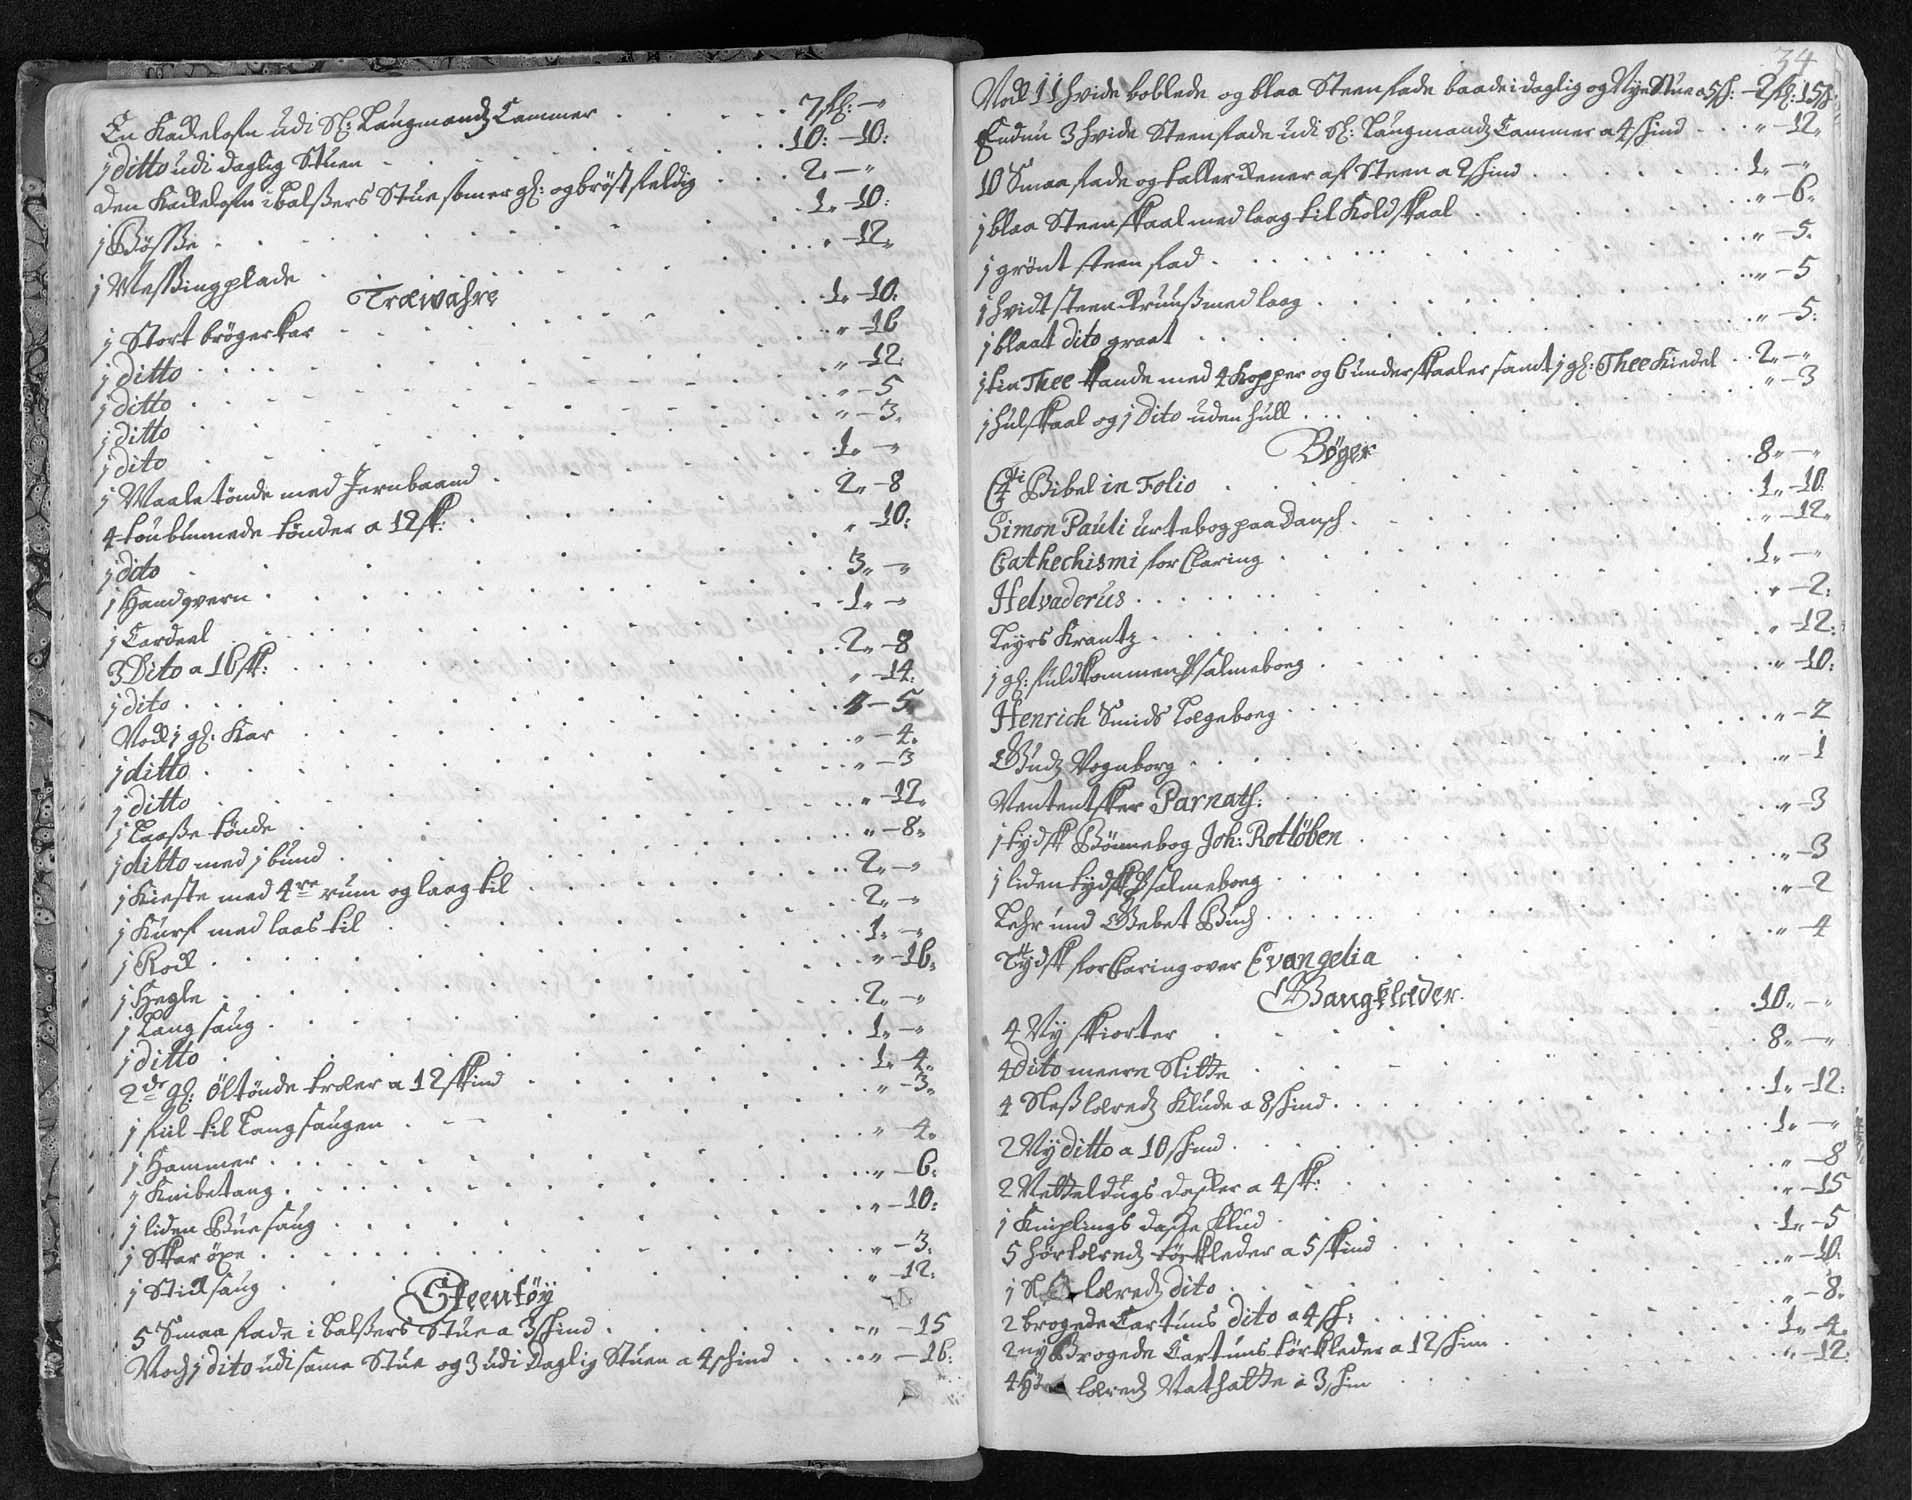 En Kackelofn udi Sl: Laugmandz Cammer . . . . . 7 sl: —
j ditto udi daglig Stuen . . . 10: — 10:
den Kackelofn i balßers Stue som er gl: og bröstfeldig . . . 2„ — „
j Bösße . . . 1„ — 10:
j Messingplade . . . „ — 12„
Træwahre
j Stort bröger kar . . . 1„ — 10:
j ditto . . . „ — 16
j ditto . . . „ — 12:
j ditto . . . „ — 5
j dito . . . „ — 3„
j Maaletönde med Jernbaand . . . 1„ — „
4 toubunnede tönder a 12 sk: . . . 2„ — 8
j dito . . . „ — 10:
j Handqvern . . . 3„ — „
j Cardeel . . . 1„ — „
3 Dito a 16 sk: . . . 2„ — 8
j dito . . . „ — 14:
Nock j gl: Kar . . . „ — 5„
j ditto . . . „ — 4„
j ditto . . . „ — 3
j Laasse tönde . . . „ — 12„
j ditto med j bund . . . „ — 8„
j Kieste med 4re rum og laag til . . . 2„ — „
j Kurf med laas til . . . 2„ — „
j Rock . . . 1„ — „
j Hegle . . . „ — 16„
j Lang saug . . . 2„ — „
j ditto . . . 1„ — „
2de gl: öltönde træer a 12 skind . . . 1„ — 4„
j fiil til Langsaugen . . . „ — 3„
j Hammer . . . „ — 4„
j Knibetang . . . „ — 6:
j liden Buesaug . . . „ — 10:
j Skaröxe . . . „ — 3:
j Sticksaug . . . „ — 12:
Steentöy
5 Smaa fade i balßers Stue a 3 skind . . . „ — 15
Noch j dito udi same Stue og 3 udi Daglig Stuen a 4 skind . . . „ — 16:
34
Nock 11 hvide boblede og blaa Steenfade baade i daglig og Nye Stue a 5 sk: — 2 sl: 15 sk:
Endnu 3 hvide Steenfade udi Sl: Laugmandz Cammer a 4 skind . . . „ — 12„
10 Smaa fade og tallerckener af Steen a 2 skind . . . 1„ — „
j blaa Steenskaal med laag til Koldskaal . . . „ — 6„
j grönt steen fad . . . „ — 5„
j hvidt steen Kruuß med laag . . . „ — 5
j blaat dito graat . . . „ — 5:
j tin Thee kande med 4 Kopper og 6 underskaaler samt j gl: Thee Kiedel . . 2„ — „
j hulskaal og j Dito uden hull . . . „ — 3
Bøger
C4ti Bibel in Folio . . . 8„ — „
Simon Pauli urtebog paa Dansch . . . 1„ — 10:
Cathechismi forClaring . . . „ — 12„
Helvaderus . . . 1„ — „
Leyrs Krantz . . . „ — 2:
j gl: fuldkommen Psalmeboeg . . . „ — 12:
Henrich Smids Lægeboeg . . . „ — 10:
Gudz Vognborg . . . „ — 2
Vententsker Parnass: . . . „ — 1
j tydsk Bönnebog Joh: Rotlöben . . . „ — 3
j liden tydsk Psalmeboeg . . . „ — 3
Lehr und Gebet Buch . . . „ — 2
Tydsk forClaring over Evangelia . . . „ — 4
Gangklæder.
4 Ny skiorter . . . 10„ — „
4 Dito meere Slitte . . . 8„ — „
4 Neßlæredz Klude a 8 skind . . . 1„ — 12:
2 Ny ditto a 10 skind . . . 1„ — „
2 Netteldugs dasker a 4 sk: . . . „ — 8
j Kniplings daske klud . . . „ — 15
5 hörlæredz törkleder a 5 skind . . . 1„ — 5
j læredz dito . . . „ — 10:
2 brogede Cartuns dito a 4 sk: . . . „ — 8„
2 ny Brogede Cartuns törkleder a 12 skin . . . 1„ — 4„
4 læredz Nathætte a 3 skin . . . „ — 12: